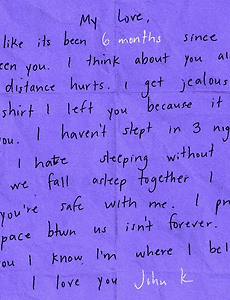 My Love,
like its been 6 months since
een you. I think about you al
distance hurts. I get jealous
shirt I left you because it
you. I haven't slept in 3 nig
I hate sleeping without
we fall asleep together I
you're safe with me. I pr
pace btwn us isn't forever.
ou I know I'm where I bel
I love you John K